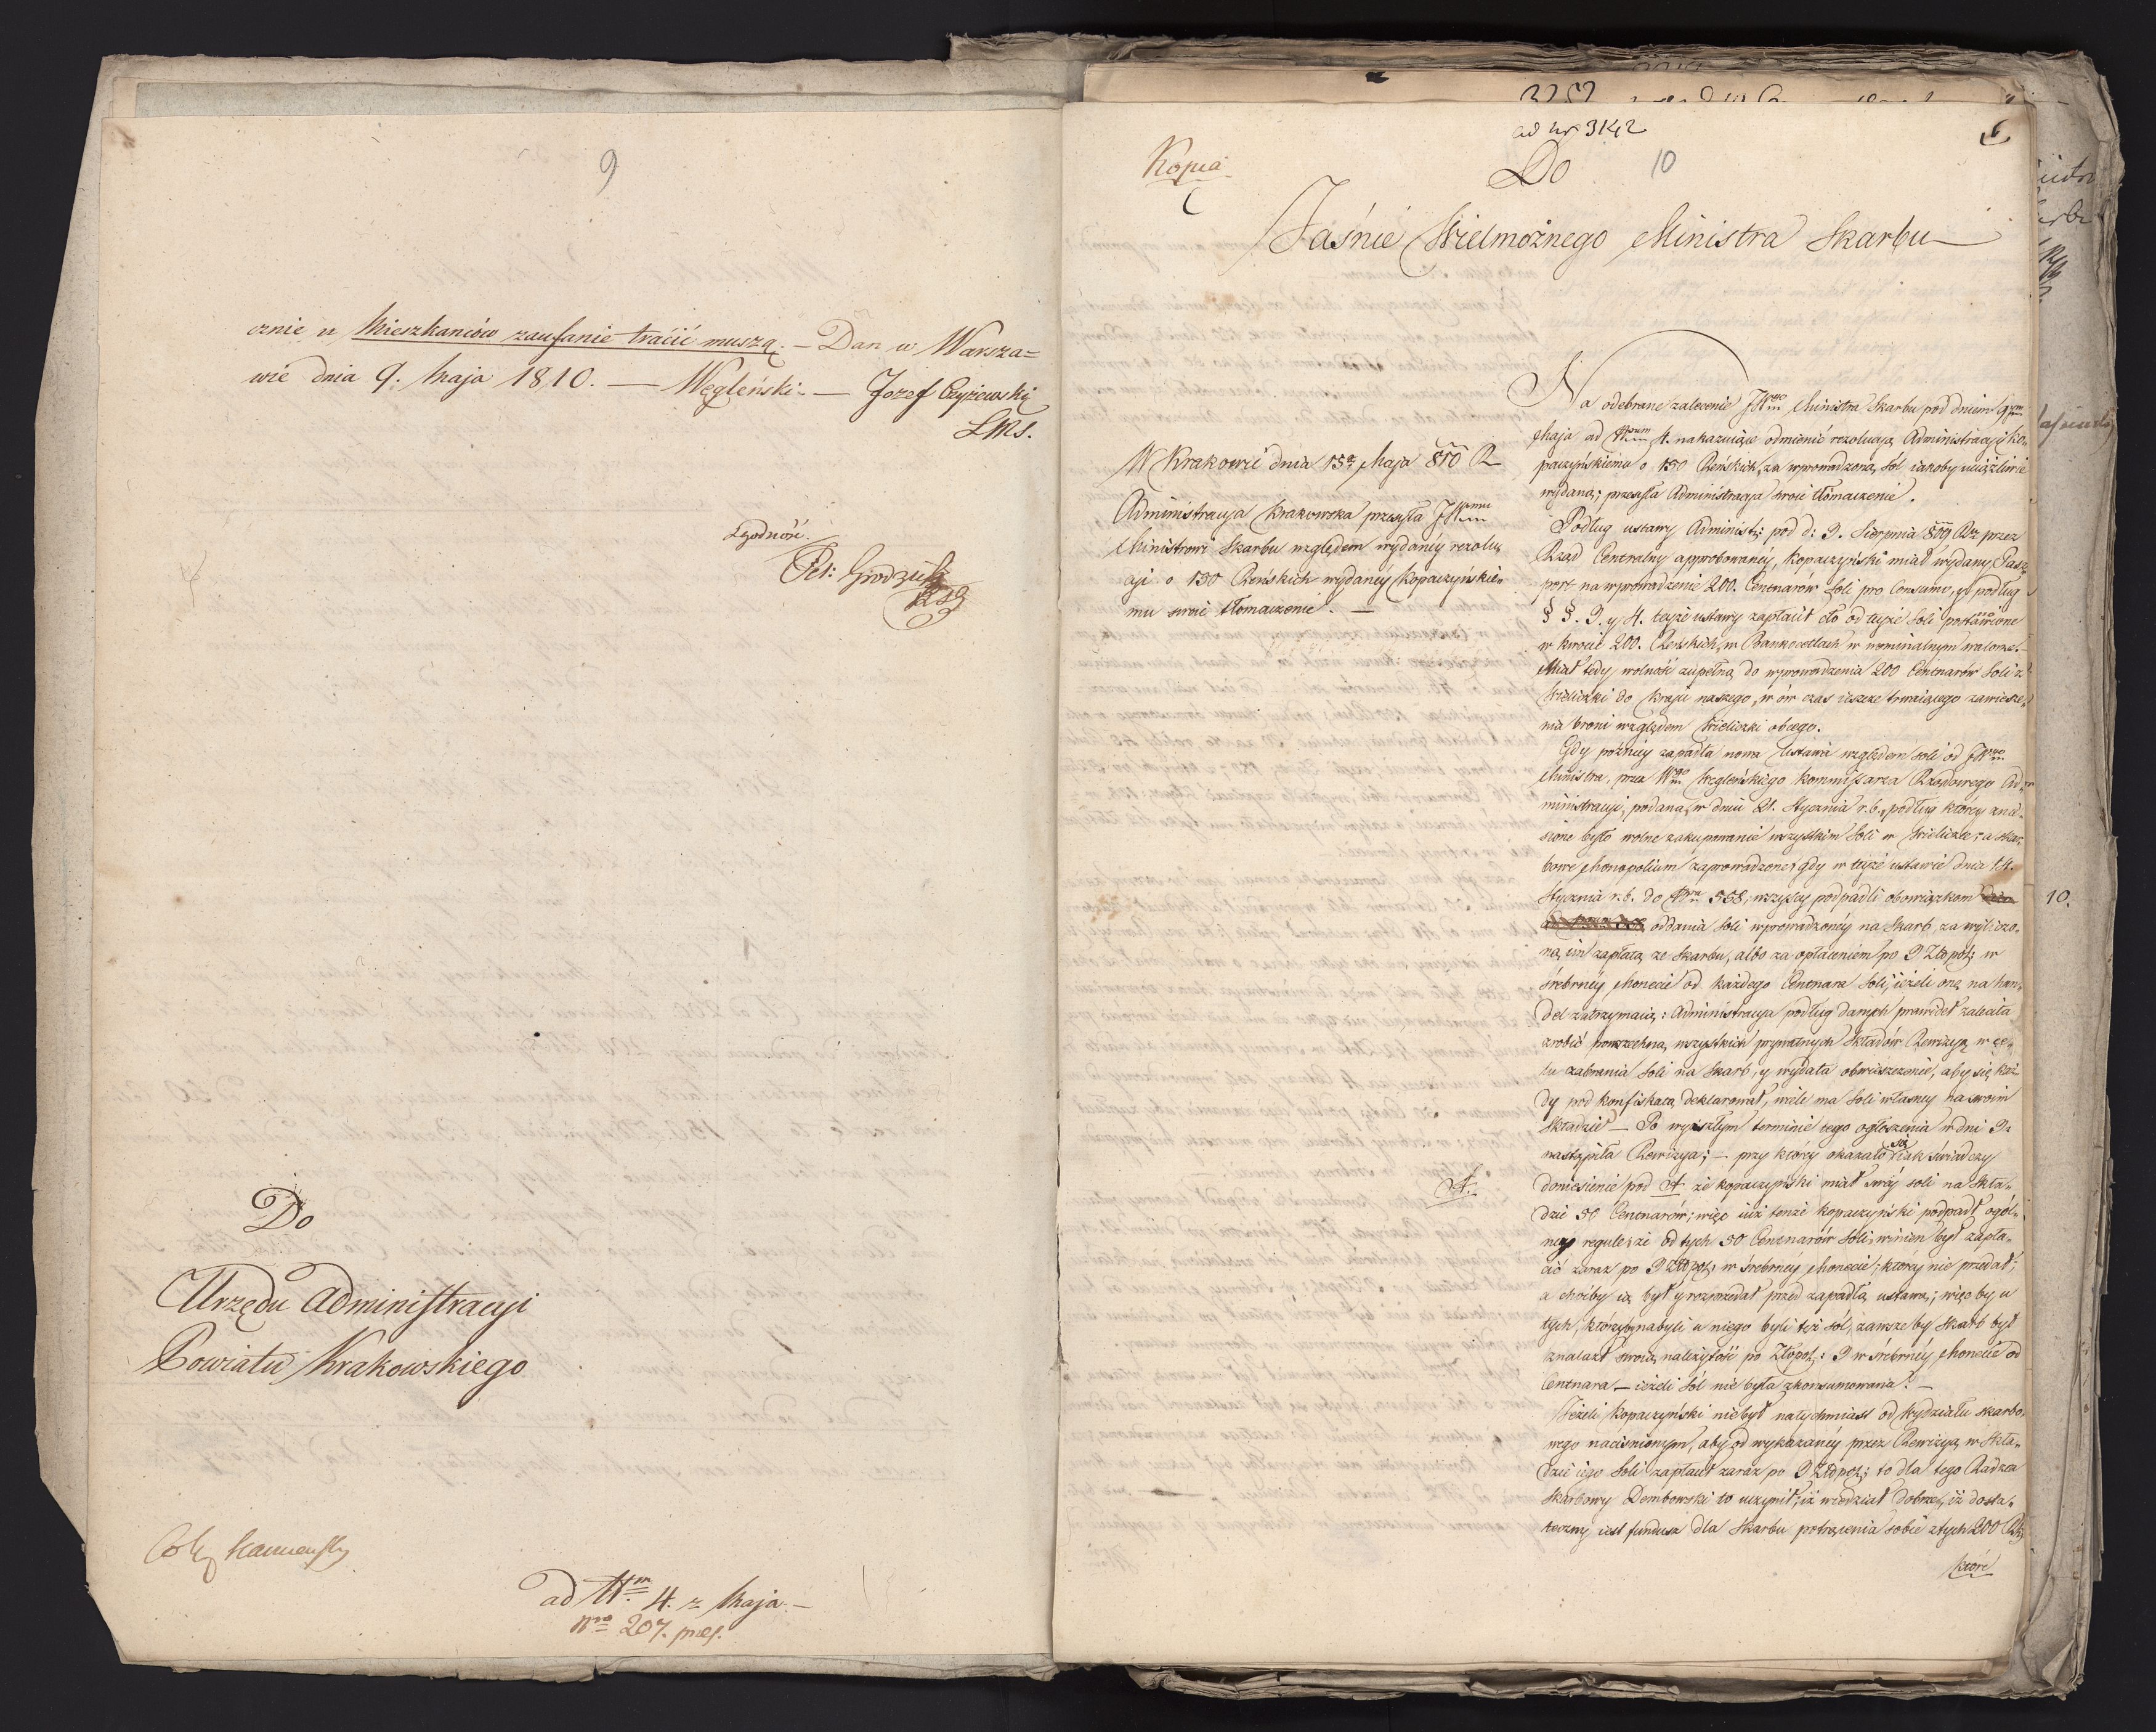 9
cznie u Mieszkańców zaufanie tracić muszą. — Dan w Warsza=
wie dnia 9. Maja 1810. — Węgleński. — Jozef Czyżewski
Zgodność.
Do
Urzędu Administracyi
Powiatu Krakowskiego
ad Nm 4. z Maja. —
Nro 207. præs.
ad nr 3142
Kopia
10
Do
Jaśnie Wielmożnego Ministra Skarbu
W Krakowie dnia 15a Maja 810 R
Administracya Krakowska przesyła JWmu
Ministrowi Skarbu względem wydanéy rezolu,
cyi o 150 Reńskich wydanéy Kopaczyńskie„
mu swoie tłomaczenie. —
Na odebrane zalecenie JWgo Ministra Skarbu pod dniem 9m
Maja ad Num 4. nakazuiące odmienić rezolucyą Administracyi Ko„
paczyńskiemu o 150 Reńskich, za wprowadzoną sól iakoby uciążliwie
wydaną; przesyła Administracya swoie tłomaczenie.
Podług ustawy Administ: pod d: 9. Sierpnia 809 Rz przez
Rząd Centralny approbowanéy, Kopaczyński miał wydany Pasz„
port na wprowadzenie 200. Centnarów Soli pro Consumo, y podług
§ §. 3. y 4. teyże ustawy zapłacił cło od teyże Soli postanowione
w kwocie 200. Reńskich, w Bankocetlach w nominalnym walorze.
Miał tedy wolność zupełną do wprowadzenia 200 Centnarów Soli z
Wieliczki do Kraju naszego, w ów czas ieszcze trwaiącego zawiesze„
nia broni względem Wieliczki obcego.
Gdy późniéy zapadła nowa Ustawa względem soli od JWgo
Ministra, przez Wgo Węgleńskiego Kommissarza Rządowego Ad„
ministracyi, podana, w dniu 21. Stycznia r. b., podług którey znie„
sione było wolne zakupowanie wszystkim Soli w Wieliczce; a skar„
bowe Monopolium zaprowadzone; gdy w teyże ustawie dnia 14.
Stycznia r. b. do Nru 558, wszyscy podpadli obowiązkom
oddania Soli wprowadzonéy na Skarb, za wyliczo„
ną im zapłatą ze Skarbu, albo za opłaceniem po 9 Złopol: w
śrebrnéy Monecie od każdego Centnara Soli, ieżeli oną na han„
del zatrzymaią: Administracya podług danych prawideł zaleciła
zrobić powszechną wszystkich prywatnych Składów Rewizyą w ce„
lu zabrania Soli na Skarb, y wydała obwieszczenie, aby się każ„
dy pod konfiskatą deklarował, wiele ma Soli własnéy na swoim
Składzie — Po wyszłym terminie tego ogłoszenia w dni
nastąpiła Rewizya; — przy któréy okazało się iak świadczy
A.
doniesienie pod A że Kopaczyński miał swéy soli na Skła„
dzie 50 Centnarów; więc iuż tenże Kopaczyński podpadł ogól„
néy regule, że od tych 50 Centnarów Soli, winien był zapła„
cić zaraz po 9 Złopol: w śrebrnéy Monecie; któréy nie przedał;
a choćby ią był y rozprzedał przed zapadłą ustawą; więc by u
tych, którzyby nabyli u niego byli też sól, zawsze by Skarb był
znalazł swoią należytość po Złopol: 9 w śrebrnéy Monecie od
Centnara — ieżeli Sól nie była zkonsumowana. —
Jeżeli Kopaczyński niebył natychmiast od Wydziału skarbo„
wego naciśnionym, aby od wykazanéy przez Rewizyą w Skła„
dzie iego Soli zapłacił zaraz po 9 Złopol: to dla tego Radzca
Skarbowy Dembowski to uczynił, iż wiedział dobrze, iż dosta„
teczny iest fundusz dla Skarbu potrącenia sobie z tych 200
które
10.